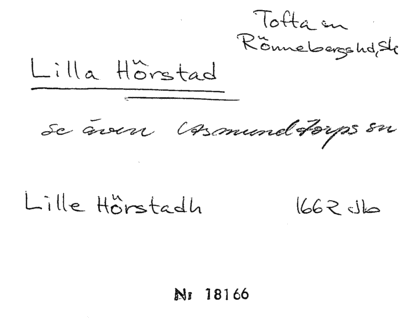 Tofta sn
Rönnebergs hd, Sk
Lilla Hörstad
se även Asmundtorps sn
Lille Hörstadh 1662 Jb
Nr 18166